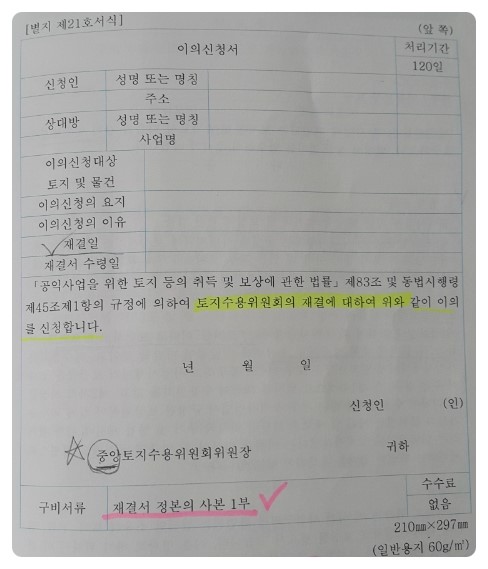 [별지 제21호서식] (앞 쪽)
이의신청서 처리기간
120일
신청인 성명 또는 명칭
주소
상대방 성명 또는 명칭
사업명
이의신청대상
토지 및 물건
이의신청의 요지
이의신청의 이유
재결일
재결서 수령일
「공익사업을 위한 토지 등의 취득 및 보상에 관한 법률」제83조 및 동법시행령
제45조제1항의 규정에 의하여 토지수용위원회의 재결에 대하여 위와 같이 이의
를 신청합니다.
년 월 일
신청인 (인)
중앙토지수용위원회위원장 귀하
구비서류 재결서 정본의 사본 1부 수수료
없음
210㎜×297㎜
(일반용지 60g/㎡)